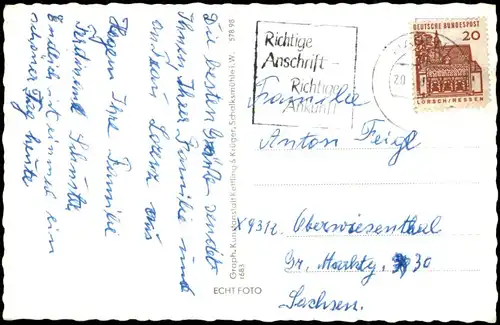 Die besten Grüße sendet
Ihnen Ihrer Familie und
Frau Lorenz aus
Hagen Ihre Familie
Ferdinand
Endlich ist einmal ein
schöner Tag heute
578 98
Graph. Kunstanstalt Kettling & Krüger, Schalksmühle i. W.
1683
ECHT FOTO
Richtige
Anschrift -
Richtige
Ankunft
DEUTSCHE BUNDESPOST
20
LORSCH/HESSEN
Familie
Anton Feigl
X9312 Oberwiesenthal
Gr. 30
Sachsen.